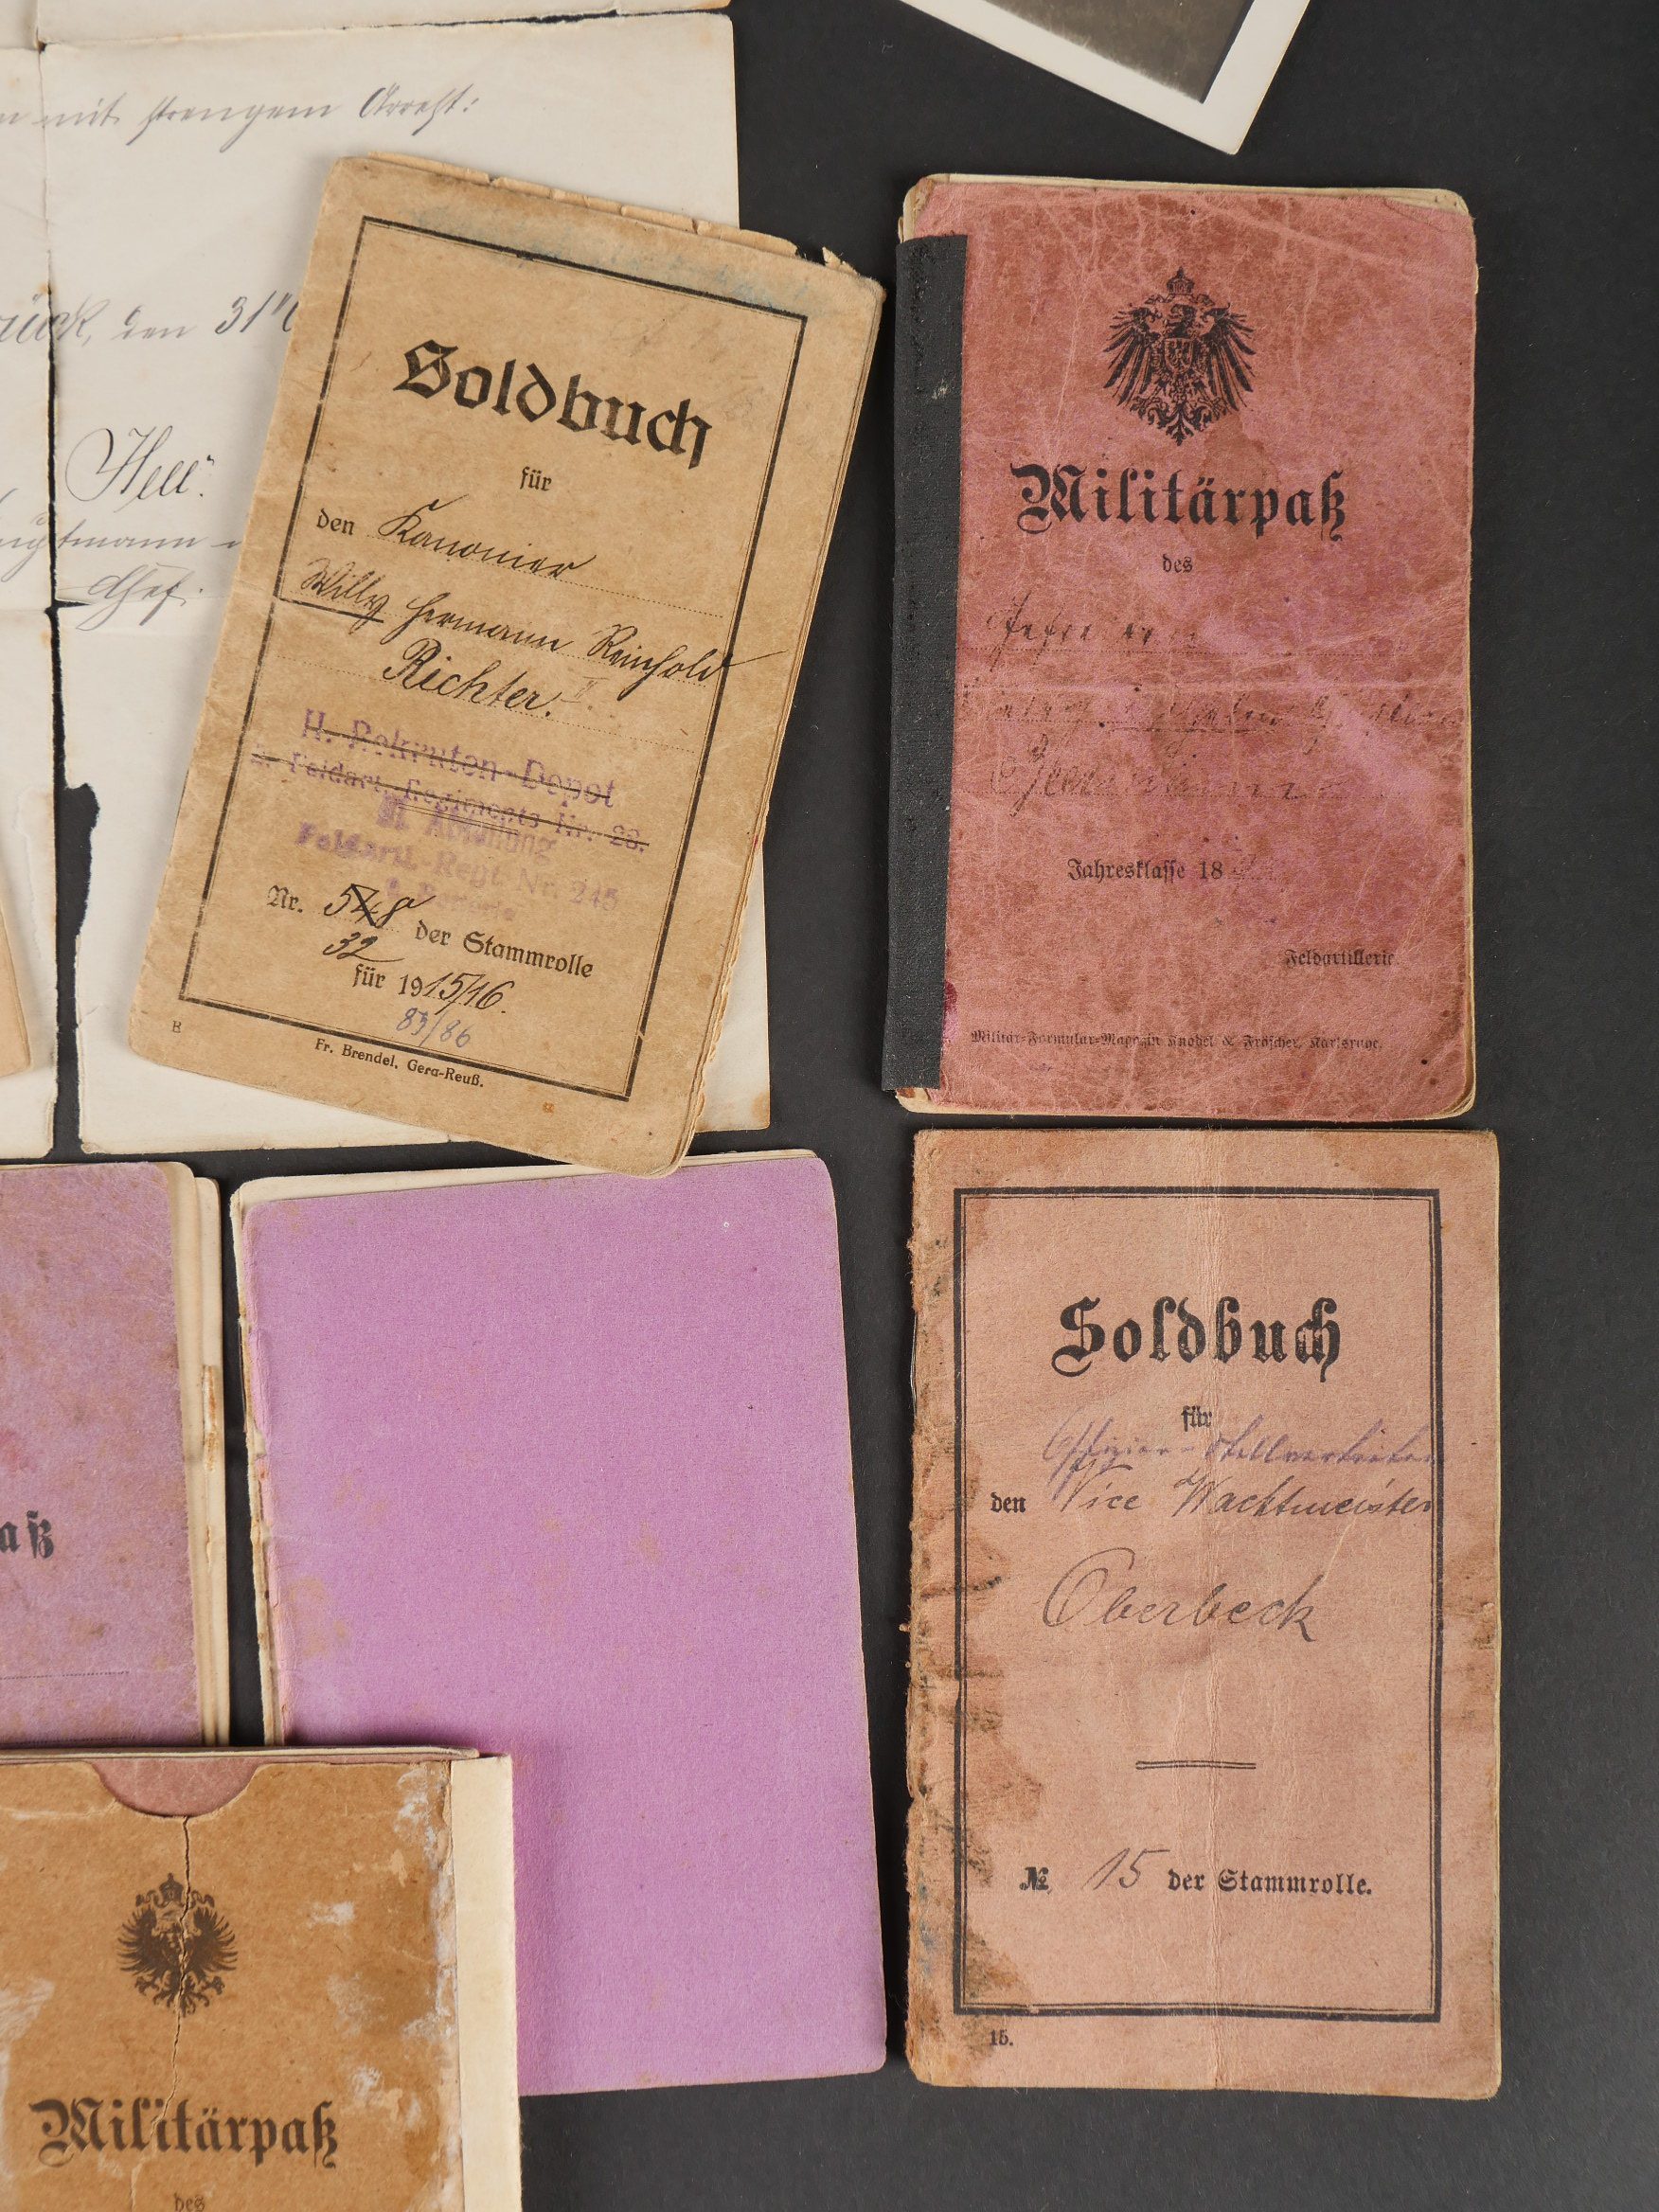 mit strengem Arrest:
den 31
Hell.
Chef.
Soldbuch
für
den Kanonier
Willy Hermann Reinhold
Richter. II.
II. Rekruten-Depot
Feldart. Regiments Nr. 28.
III Abteilung
Feldartl.-Regt. Nr. 245
Nr. 548 der Stammrolle
32
für 1915/16.
85/86
Fr. Brendel, Gera-Reuß.
Militärpaß
des
Gefreiten
Jahresklasse 18
Feldartillerie.
Militär-Formular-Magazin Knobel & Fröscher, Karlsruhe.
aß
Soldbuch
für
Offizier-Stellvertreter
den Vice Wachtmeister
Oberbeck
№ 15 der Stammrolle.
15.
Militärpaß
des